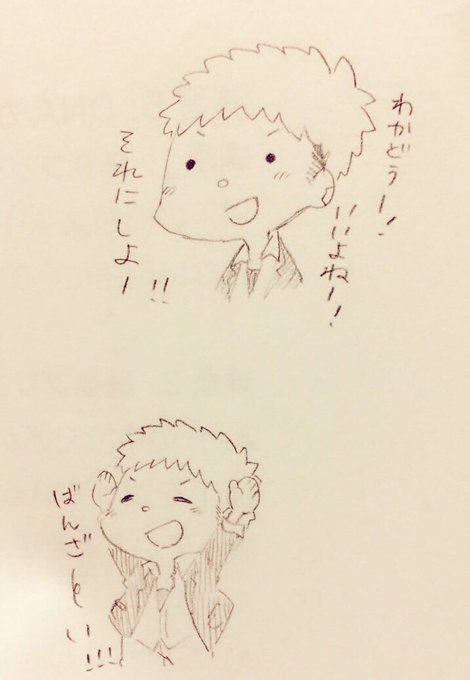 わかどうー!
いいよねー!
それにしよー!!
ばんざーい!!!